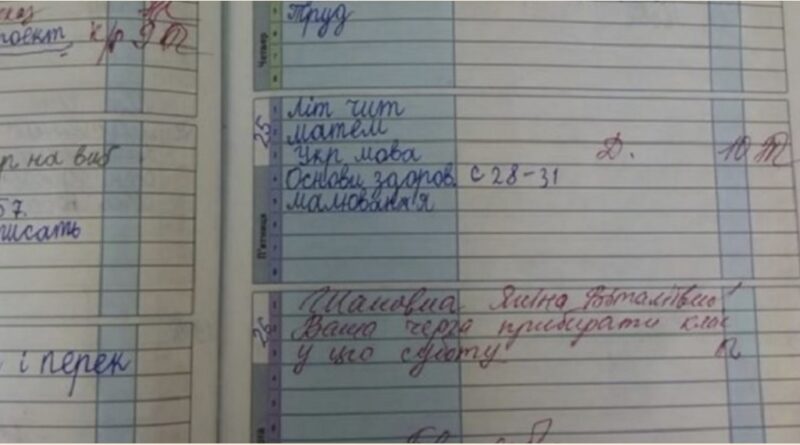 к/р 9
на виб
57
писать
і перек
Четвер
Труд
25
П'ятниця
Літ чит
матем
Укр мова Д. 10
Основи здоров с 28-31
малювання
26
Шановна Яніна Віталіївно!
Ваша черга прибирати клас
у цю суботу